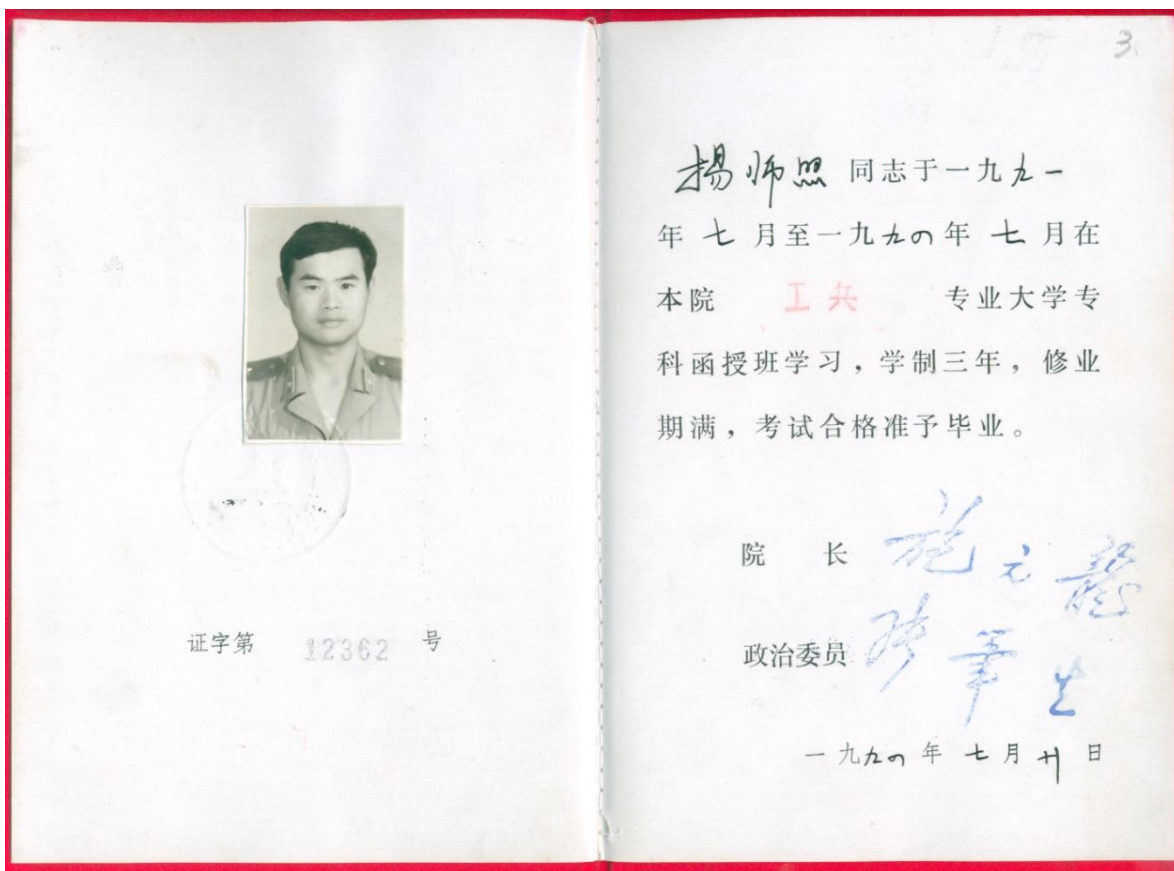 证字第 12362 号
3
楊师照 同志于一九九一
年七月至一九九四年七月在
本院 工兵 专业大学专
科函授班学习，学制三年，修业
期满，考试合格准予毕业。
院 长 施元龍
政治委员 生
一九九四年七月廿日